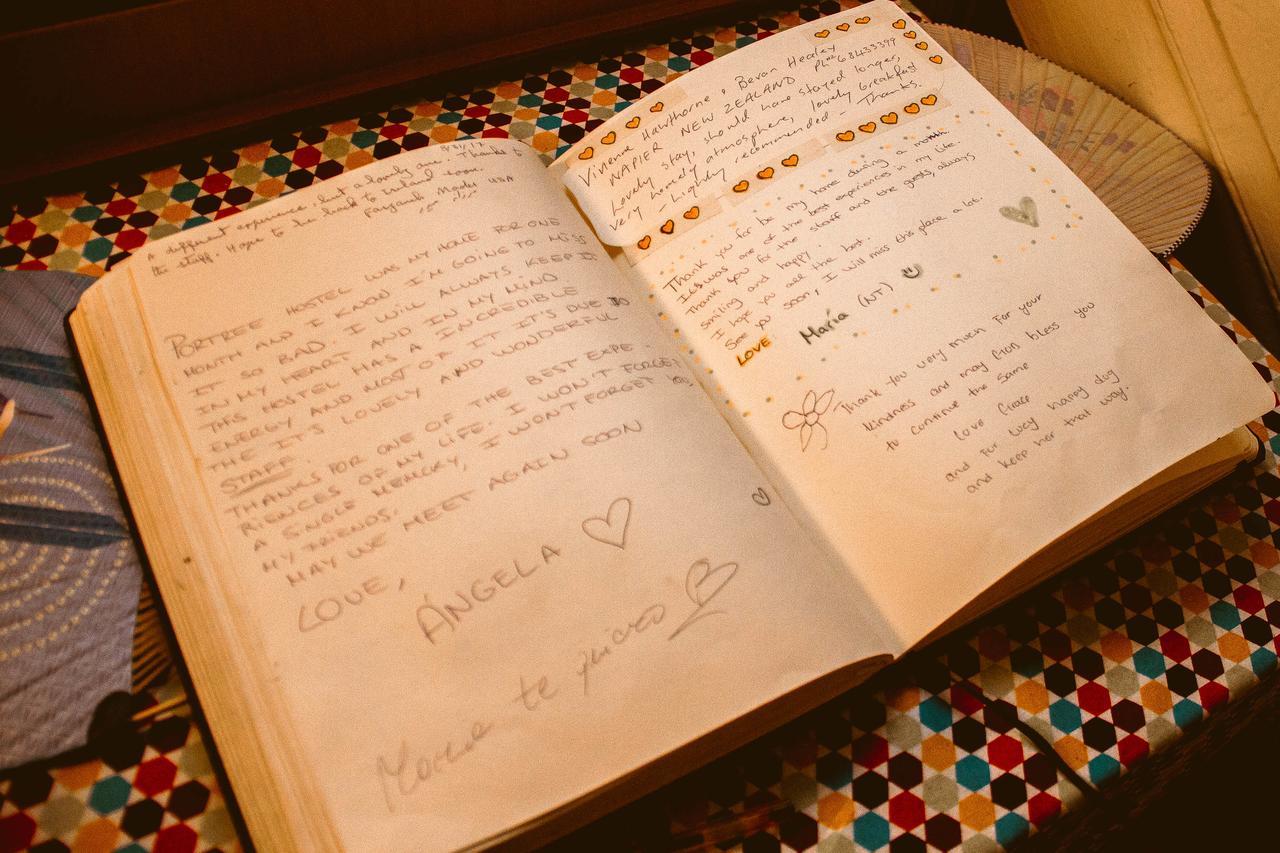 A different experience but a lovely one. Thanks to
the staff. Hope to be back to Ireland soon.
USA
PORTREE HOSTEL WAS MY HOME FOR ONE
MONTH AND I KNOW I'M GOING TO MISS
IT SO BAD. I WILL ALWAYS KEEP IT
IN MY HEART AND IN MY MIND
THIS HOSTEL HAS A INCREDIBLE
ENERGY AND MOST OF IT IT'S DUE TO
THE IT'S LOVELY AND WONDERFUL
STAFF.
THANKS FOR ONE OF THE BEST EXPE-
RIENCES OF MY LIFE. I WON'T FORGET
A SINGLE MEMORY, I WON'T FORGET YOU
MY FRIENDS.
MAY WE MEET AGAIN SOON
LOVE,
ÁNGELA
te quiero
Vivienne Hawthorne & Bevan Healey
NAPIER NEW ZEALAND Ph 68433399
Lovely stay, should have stayed longer,
very homely atmosphere, lovely breakfast
- Highly recommended - Thanks.
Thank you for be my home during a month.
It was one of the best experiences in my life.
Thank you for the staff and the guests, always
smiling and happy.
I hope you all the best.
See you soon, I will miss this place a lot.
LOVE
María (NT)
Thank you very much for your
kindness and may God bless you
to continue the same
love Grace
and fur way happy dog
and keep her that way.